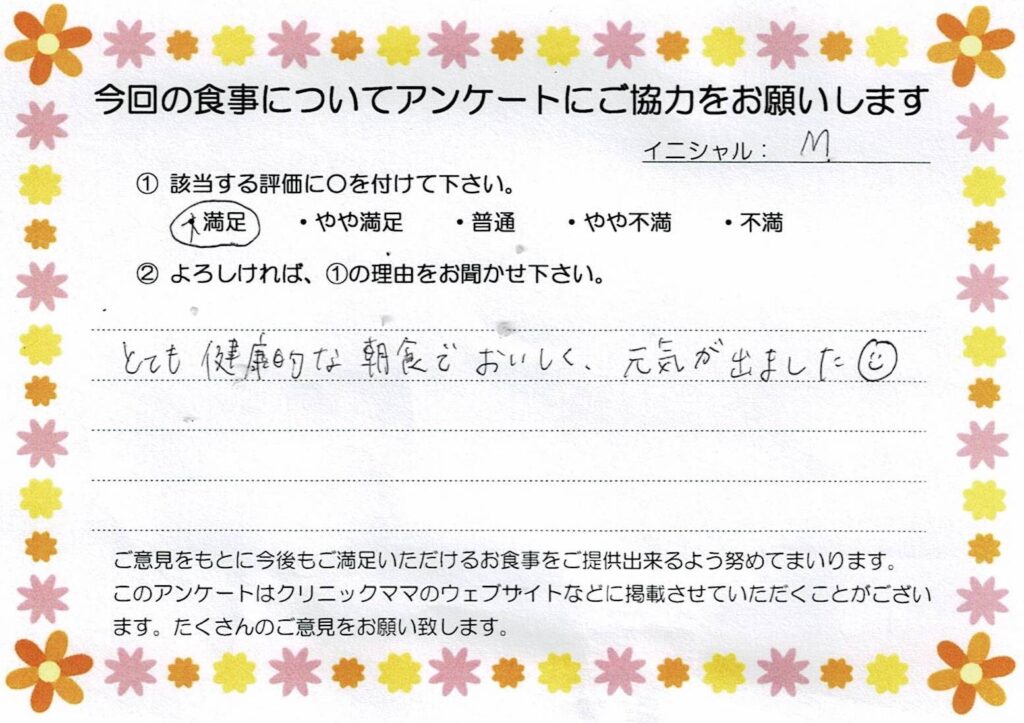 今回の食事についてアンケートにご協力をお願いします
イニシャル： M
① 該当する評価に〇を付けて下さい。
・満足 ・やや満足 ・普通 ・やや不満 ・不満
② よろしければ、①の理由をお聞かせ下さい。
とても健康的な朝食でおいしく、元気が出ました☺
ご意見をもとに今後もご満足いただけるお食事をご提供出来るよう努めてまいります。
このアンケートはクリニックママのウェブサイトなどに掲載させていただくことがござい
ます。たくさんのご意見をお願い致します。